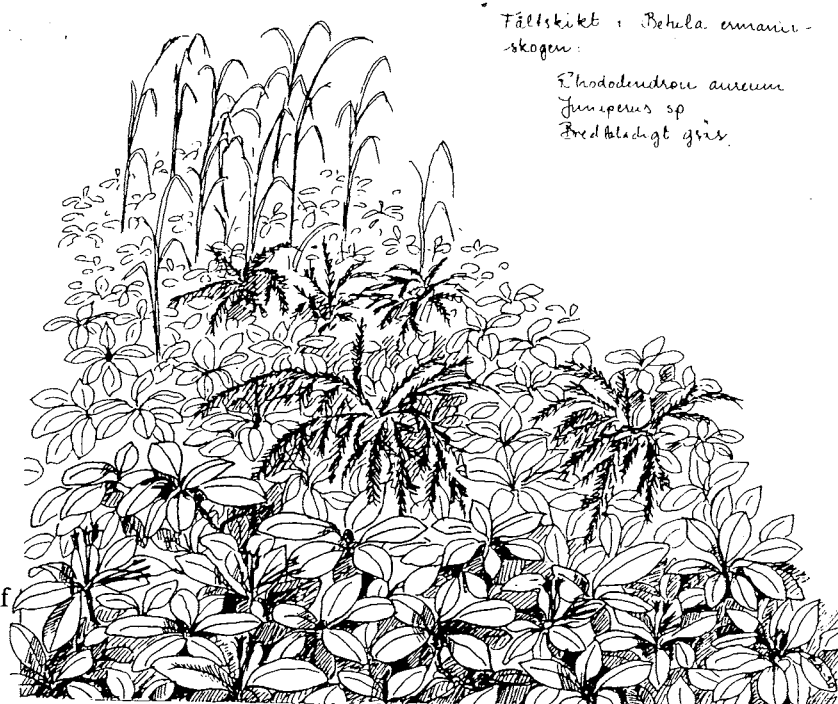 Fältskikt i Betula ermanii-
-skogen:
Rhododendron aureum
Juniperus sp
Bredbladigt gräs.
f